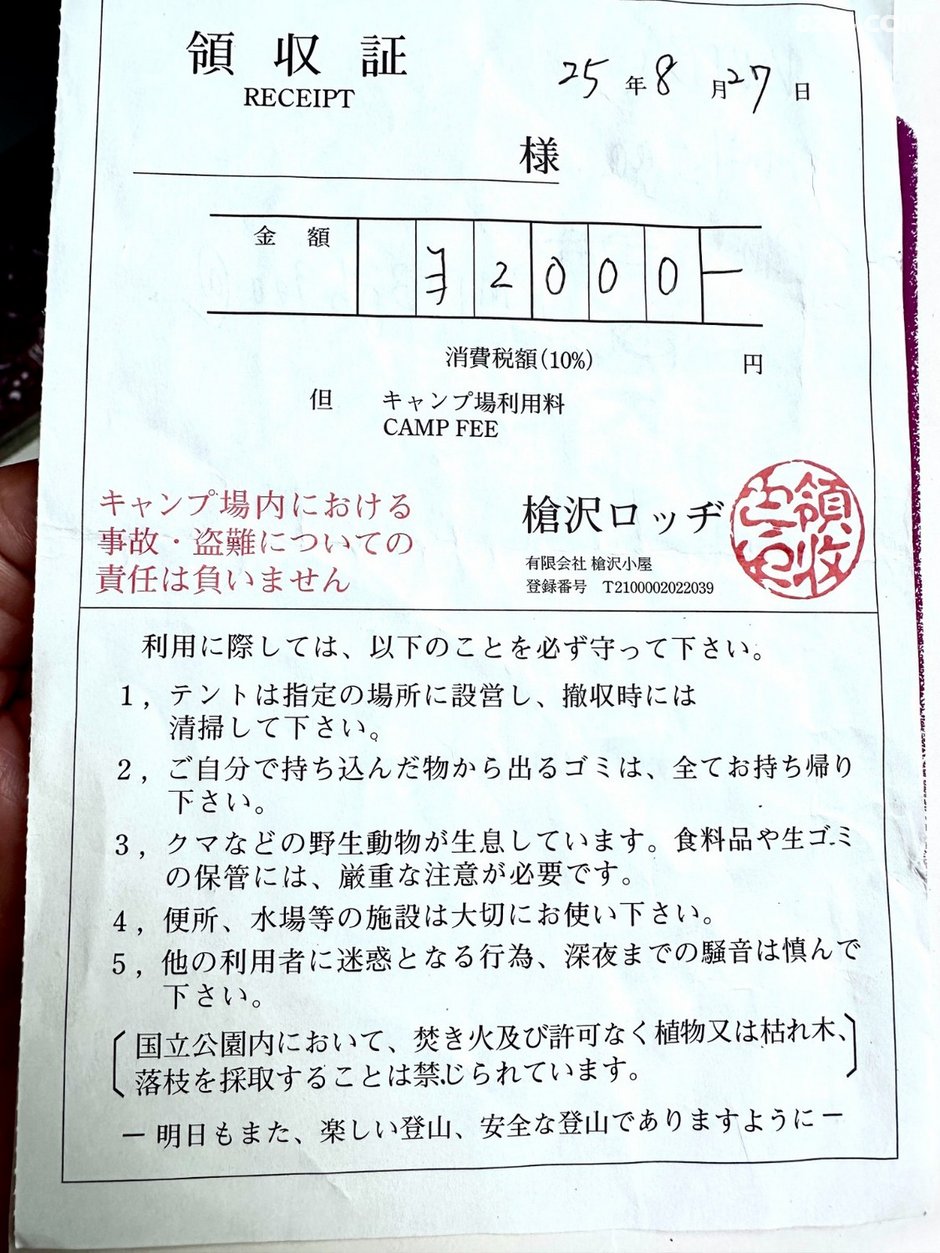 領収証
RECEIPT
25年8月27日
様
金額 ¥2000ー
消費税額(10%) 円
但 キャンプ場利用料
CAMP FEE
キャンプ場内における
事故・盗難についての
責任は負いません
槍沢ロッヂ
有限会社 槍沢小屋
登録番号 T2100002022039
領収
利用に際しては、以下のことを必ず守って下さい。
1，テントは指定の場所に設営し、撤収時には
清掃して下さい。
2，ご自分で持ち込んだ物から出るゴミは、全てお持ち帰り
下さい。
3，クマなどの野生動物が生息しています。食料品や生ゴミ
の保管には、厳重な注意が必要です。
4，便所、水場等の施設は大切にお使い下さい。
5，他の利用者に迷惑となる行為、深夜までの騒音は慎んで
下さい。
〔国立公園内において、焚き火及び許可なく植物又は枯れ木、
落枝を採取することは禁じられています。〕
ー 明日もまた、楽しい登山、安全な登山でありますように ー